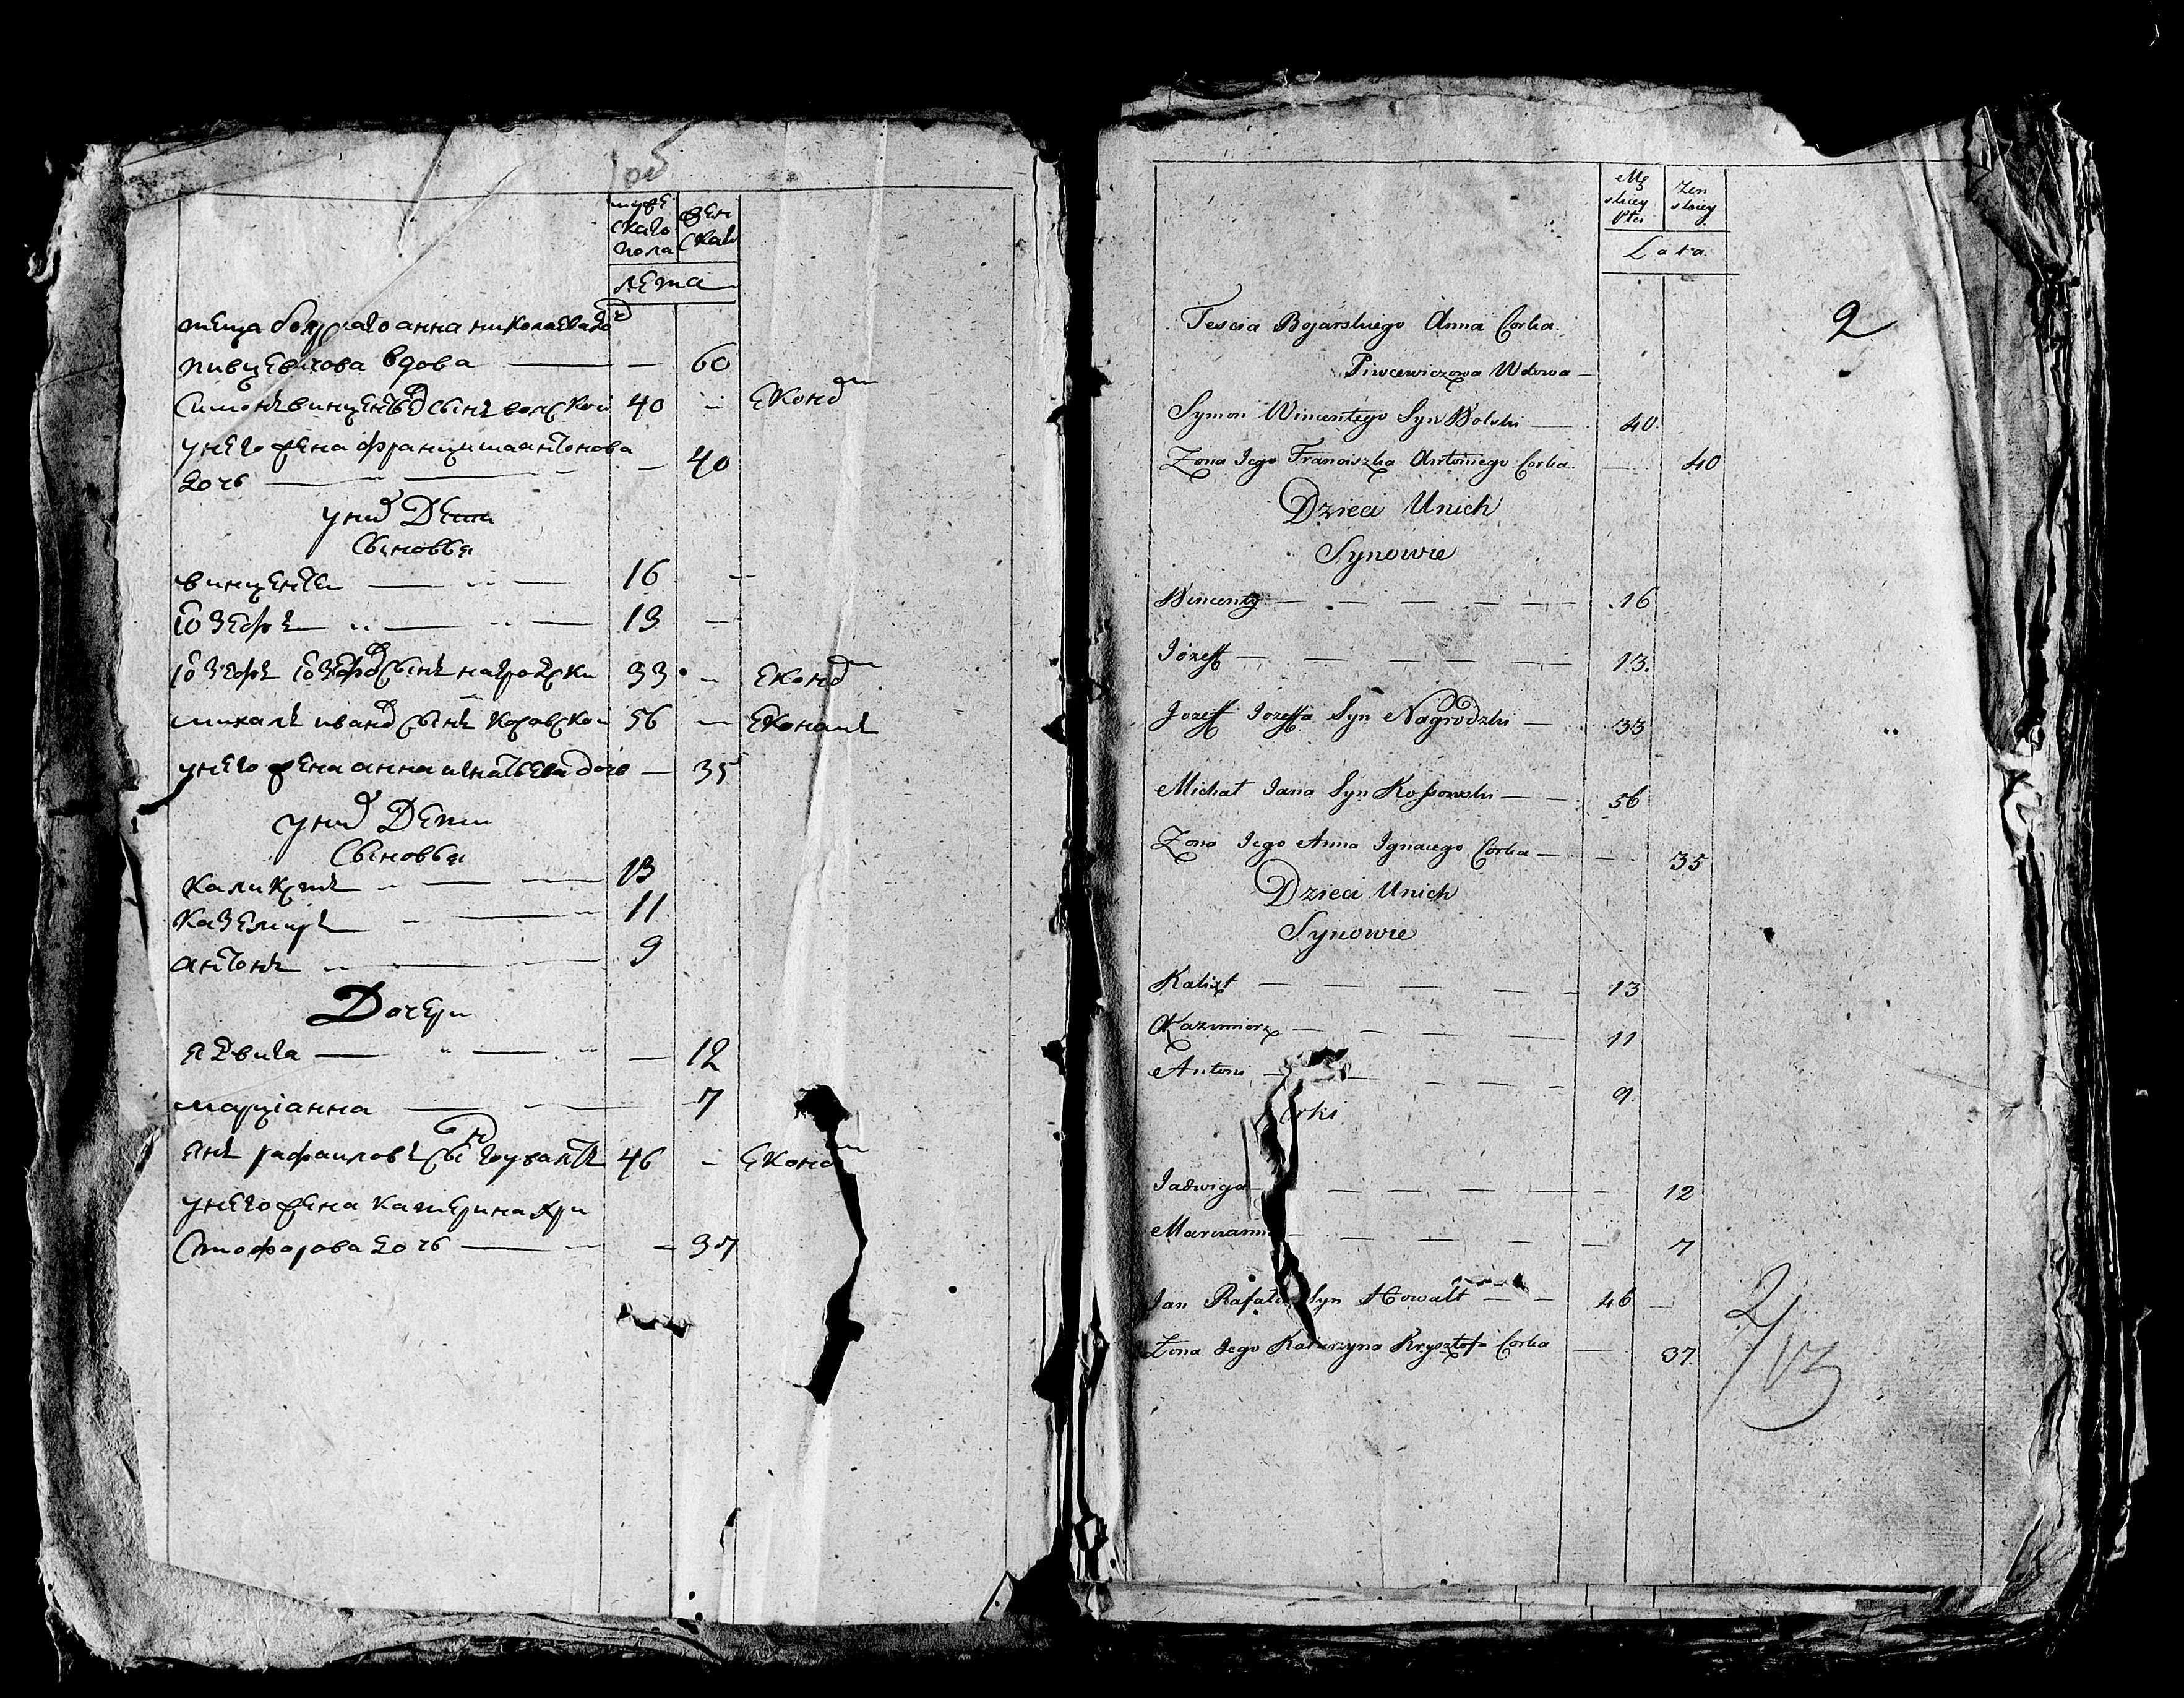 муже
ского
пола
жен
скаго
лета
теща боярскаго анна николаева доч
пивцевичова вдова — — 60
Симонъ винцентовъ сынъ волской 40 — Економ
у него жена францишка антонова
дочь — — 40
у них Дети
Сыновья
винценти — 16 —
Іозефъ — 13 —
Іозефъ Іозефов сынъ нагродски 33 — Економ
михалъ иванов сынъ косовскои 56 — Економъ
у него жена анна игнатьева дочь — 35
у них Дети
Сыновья
Каликстъ — 13
Каземиръ — 11
антонъ — 9
Дочери
ядвига — — 12
марціанна — 7
янъ рафаиловъ сын говалтъ 46 — Економ
у него жена катерина хри
стофорова дочь — — 37
Mę
skiey
Płci
Żen
skiey
Lata
2
Tescia Bojarskiego Anna Corka
Piwcewiczowa Wdowa —
Symon Wincentego Syn Wolski — 40
Zona Jego Franciszka Antoniego Corka — 40
Dzieci Unich
Synowie
Wincenty — — — — — — 16
Jozeff — — — — — — 13.
Jozeff Jozeffa Syn Nagrodzki — 33
Michał Jana Syn Kossowski — — 56
Zona Jego Anna Ignacego Corka — — 35
Dzieci Unich
Synowie
Kalixt — — — — — 13
Kazimierz — — — — — 11
Antoni — — — — — 9.
Corki
Jadwiga — — — — — — — 12
Marcianna — — — — — — 7
Jan Rafała Syn Howalt — — 46 —
Zona Jego Katarzyna Krysztofa Corka — 37.
2/13